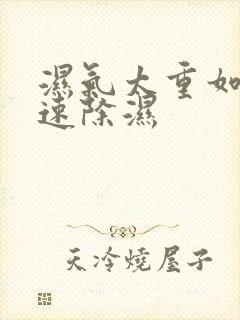 濕氣大重如
速除濕
天冷燒屋子